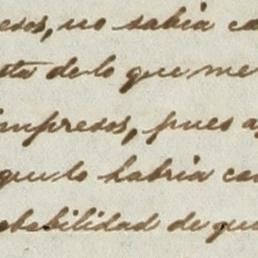 esos, no sabia ca
sta de lo que me
impresos, pues a
que lo habria ca
obabilidad de que